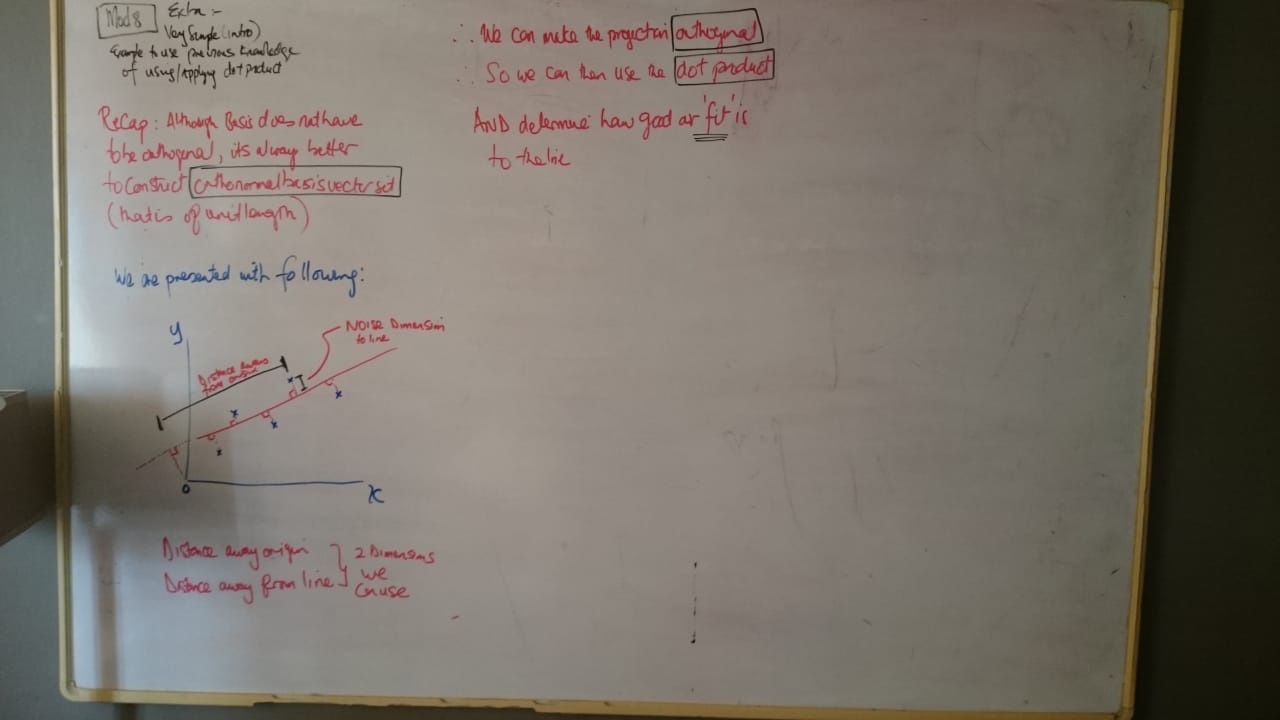 Mod 8
Extra :-
Very Simple (intro)
Example to use previous knowledge
of using/Applying dot product
Recap: Although Basis does not have
to be orthogonal, its alway better
to construct orthonormal basis vector set
(that is of unit length)
We are presented with following:
y
NOISE Dimension
to line
Distance away
from origin
0
x
Distance away origin
Distance away from line
2 Dimensions
we
can use
∴ We can make the projection orthogonal
∴ So we can then use the dot product
AND determine how good ar 'fit' is
to the line